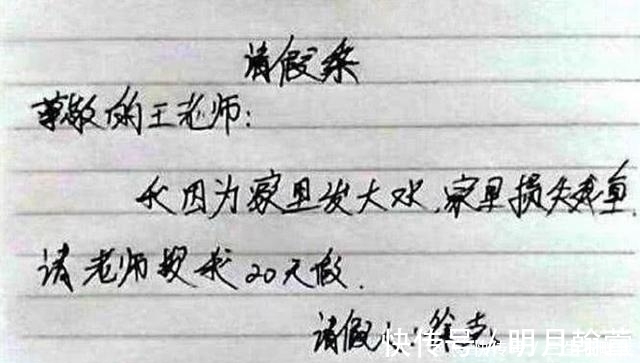 请假条
尊敬的王老师:
我因为家里发大水,家里损失惨重,
请老师授我20天假.
请假人:徐
快传号 明月翰萱